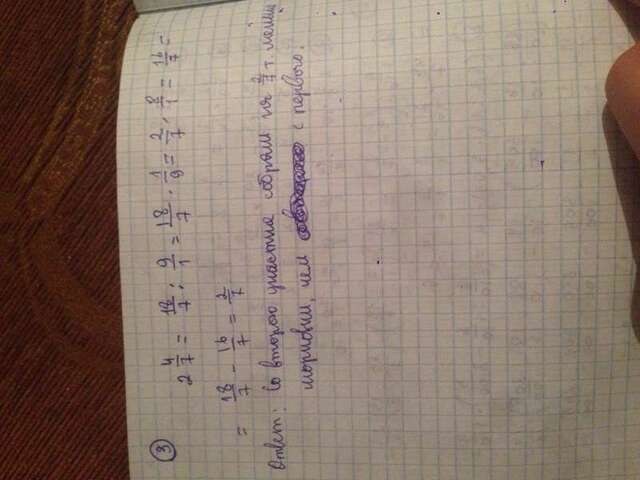 ③
2 4/7 = 18/7 : 9/1 = 18/7 · 1/9 = 2/7 · 8/1 = 16/7 =
= 18/7 - 16/7 = 2/7
Ответ: Со второго участка собрали на 2/7 т. меньше
моркови, чем с первого.